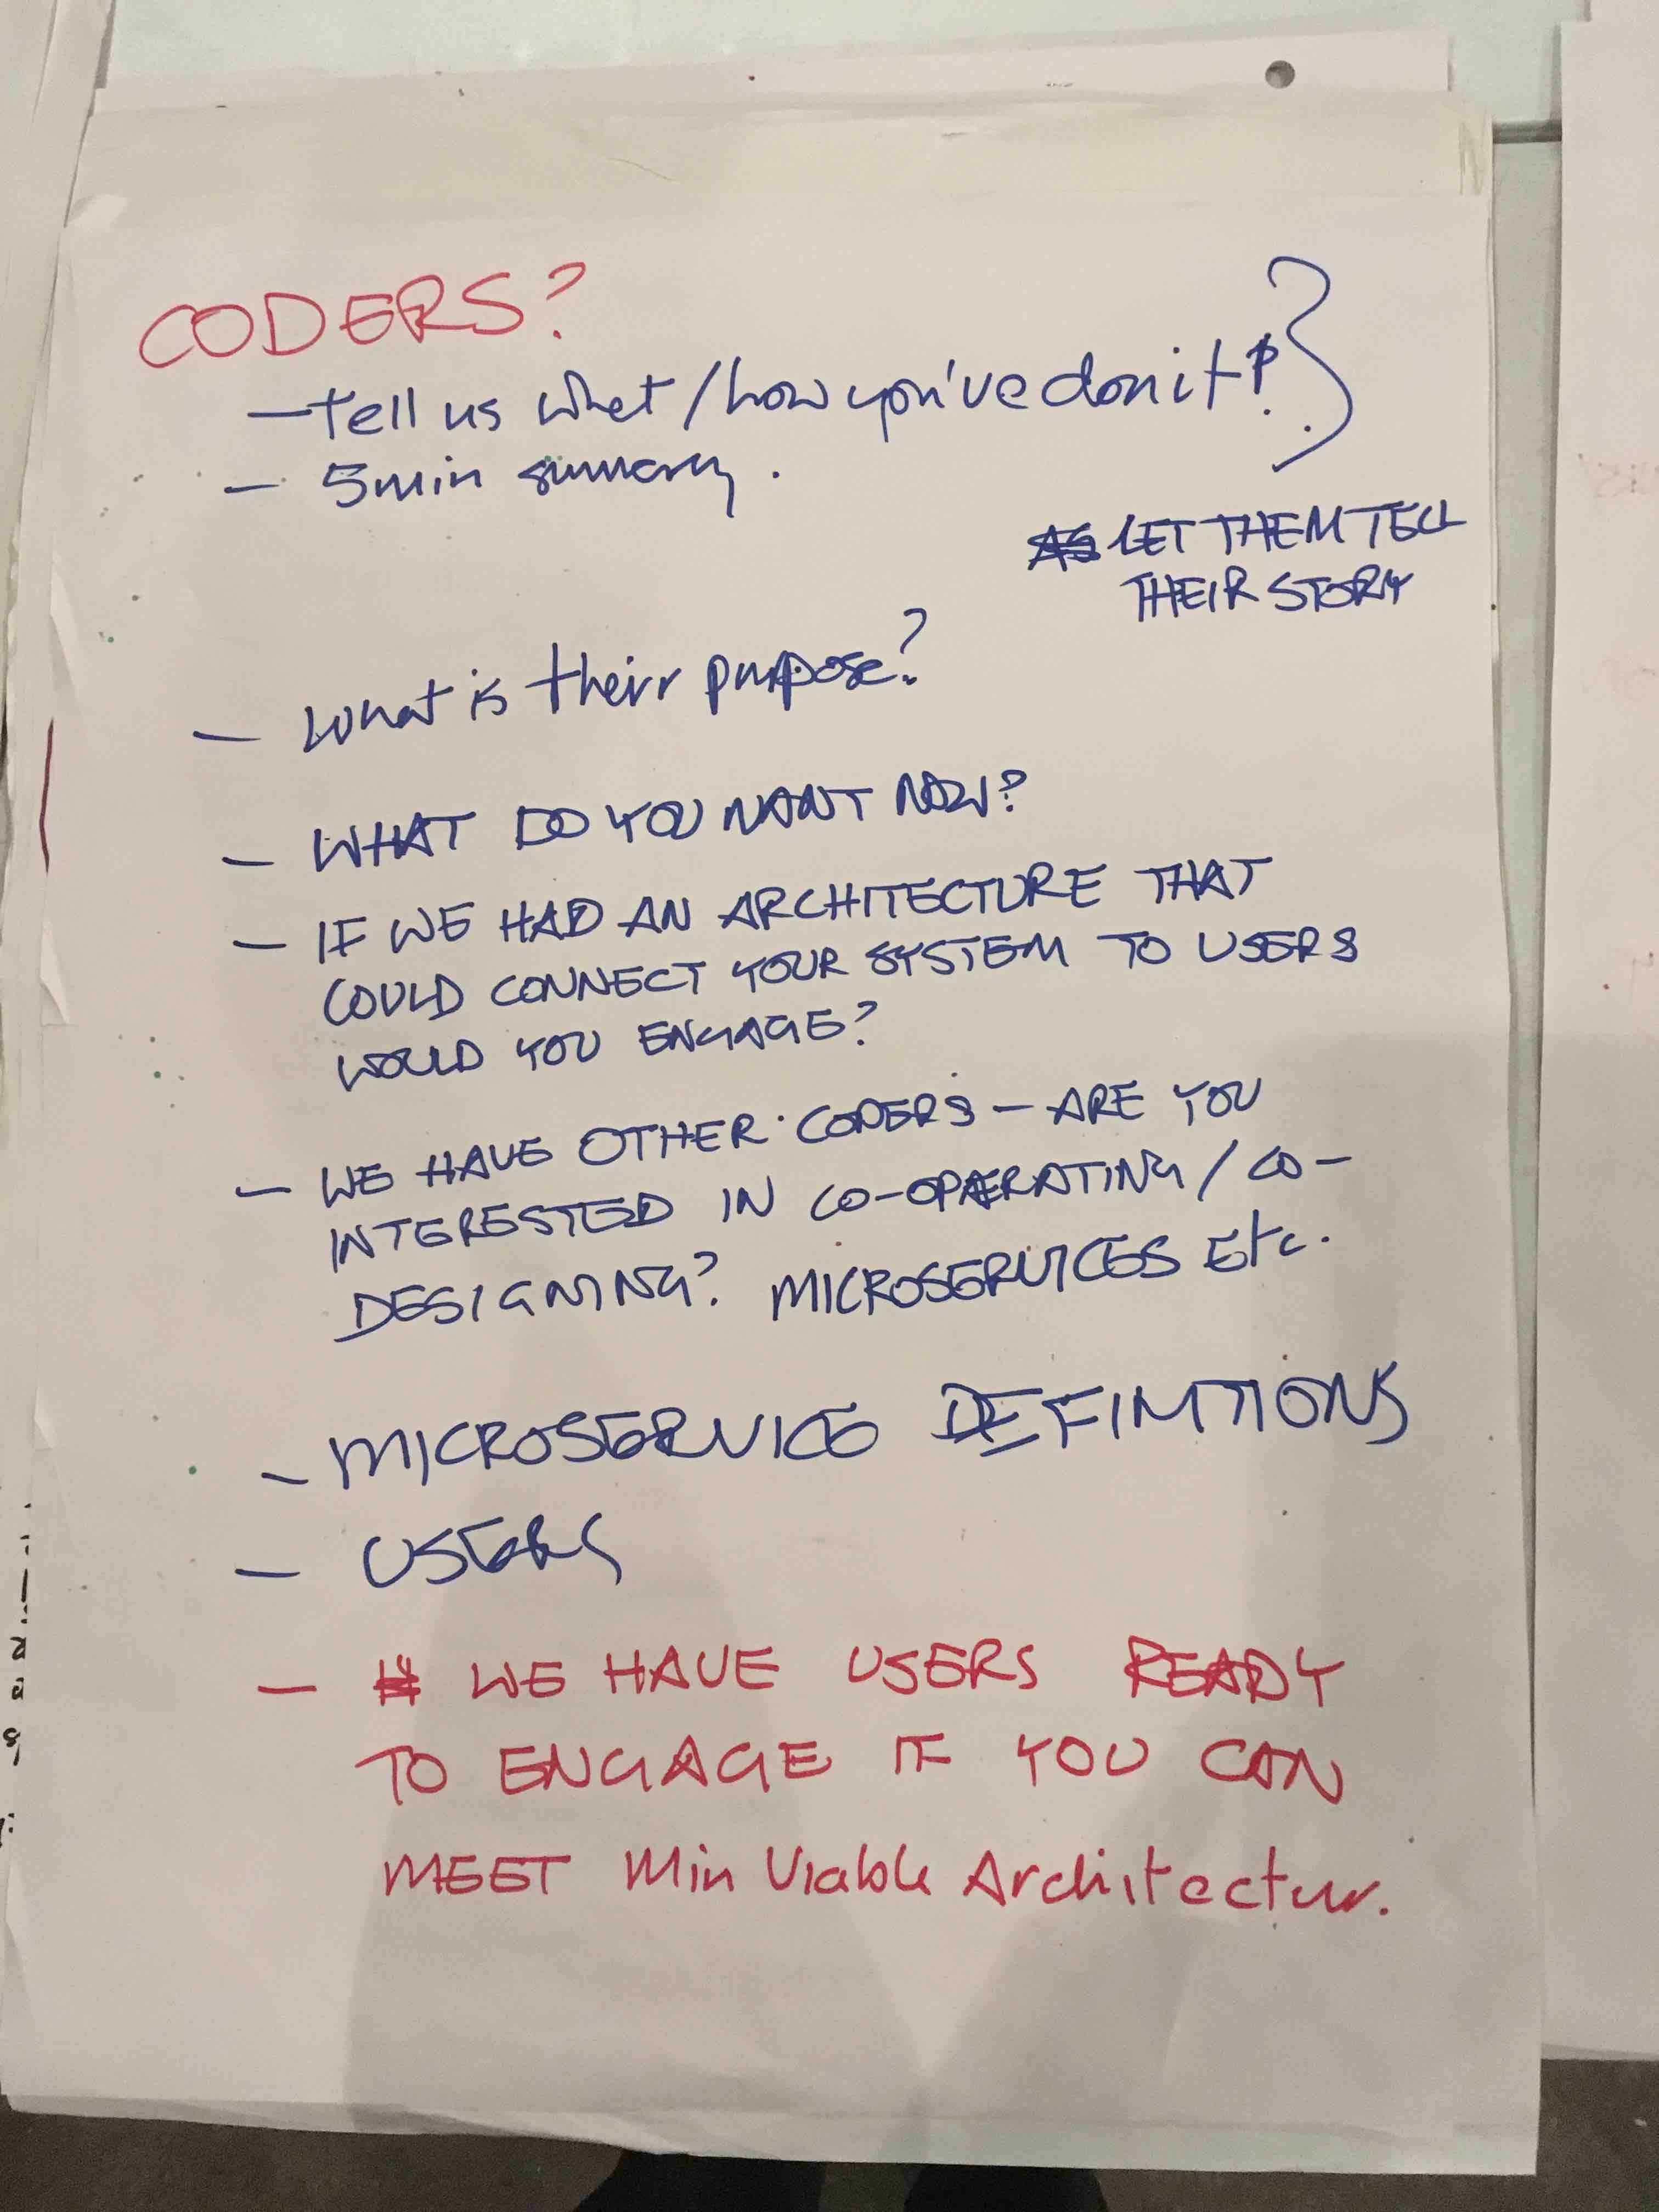 CODERS?
- Tell us what/how you've don it?
- 5min summary.
LET THEM TELL
THEIR STORY
- What is their purpose?
- WHAT DO YOU WANT NOW?
- IF WE HAD AN ARCHITECTURE THAT
COULD CONNECT YOUR SYSTEM TO USERS
WOULD YOU ENGAGE?
- WE HAVE OTHER CODERS - ARE YOU
INTERESTED IN CO-OPERATING / CO-
DESIGNING? MICROSERVICES Etc.
- MICROSERVICE DEFINITIONS
- USERS
- WE HAVE USERS READY
TO ENGAGE IF YOU CAN
MEET Min Viable Architectur.